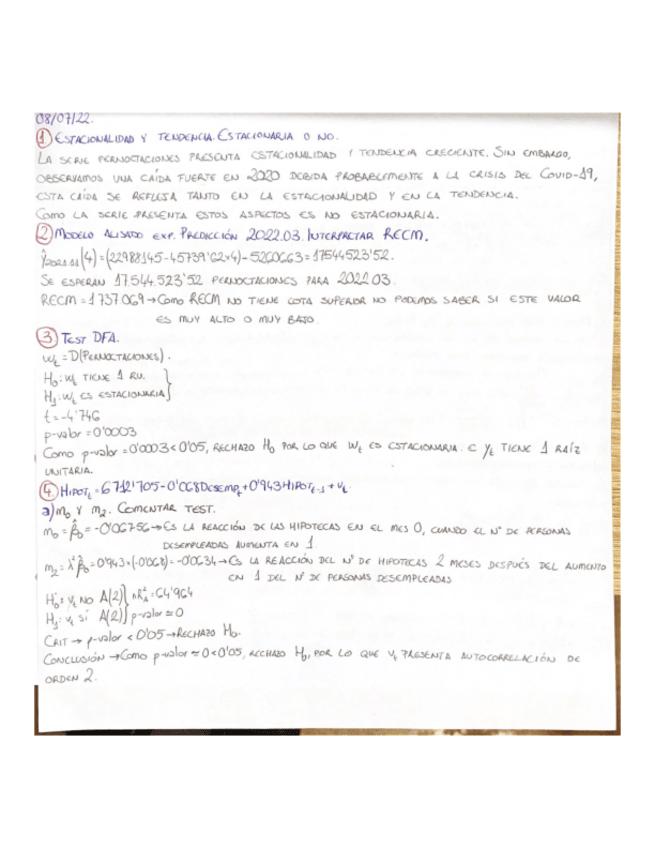 08/07/22.
① ESTACIONALIDAD Y TENDENCIA. ESTACIONARIA O NO.
LA SERIE PERNOCTACIONES PRESENTA ESTACIONALIDAD Y TENDENCIA CRECIENTE. SIN EMBARGO,
OBSERVAMOS UNA CAÍDA FUERTE EN 2020 DEBIDA PROBABLEMENTE A LA CRISIS DEL COVID-19,
ESTA CAÍDA SE REFLEJA TANTO EN LA ESTACIONALIDAD Y EN LA TENDENCIA.
COMO LA SERIE PRESENTA ESTOS ASPECTOS ES NO ESTACIONARIA.
② MODELO ALISADO EXP. PREDICCIÓN 2022.03. INTERPRETAR RECM.
ŷ2021.11(4)=(22988145-45739'62×4)-5260663=17544523'52.
SE ESPERAN 17.544.523'52 PERNOCTACIONES PARA 2022.03.
RECM=1737.069→COMO RECM NO TIENE COTA SUPERIOR NO PODEMOS SABER SI ESTE VALOR
ES MUY ALTO O MUY BAJO.
③ TEST DFA.
Wt=D(PERNOCTACIONES).
H0: Wt TIENE 1 RU.
H1: Wt ES ESTACIONARIA}
t=-4'746
p-valor=0'0003
COMO p-valor=0'0003<0'05, RECHAZO H0 POR LO QUE Wt ES ESTACIONARIA. E Yt TIENE 1 RAÍZ
UNITARIA.
④ HIPOTt=6712'705-0'068DESEMPt+0'943HIPOTt-1+Vt.
a) m0 Y m2. COMENTAR TEST.
m0=β̂0=-0'06756→ES LA REACCIÓN DE LAS HIPOTECAS EN EL MES 0, CUANDO EL Nº DE PERSONAS
DESEMPLEADAS AUMENTA EN 1.
m2=λ²β̂0=0'943×(-0'068)=-0'0634→ES LA REACCIÓN DEL Nº DE HIPOTECAS 2 MESES DESPUÉS DEL AUMENTO
EN 1 DEL Nº DE PERSONAS DESEMPLEADAS
H0: Vt NO A(2)} nRA²=64'964
H1: Vt SÍ A(2)} p-valor≃0
CRIT → p-valor<0'05→RECHAZO H0.
CONCLUSIÓN →COMO p-valor≃0<0'05, RECHAZO H0, POR LO QUE Vt PRESENTA AUTOCORRELACIÓN DE
ORDEN 2.